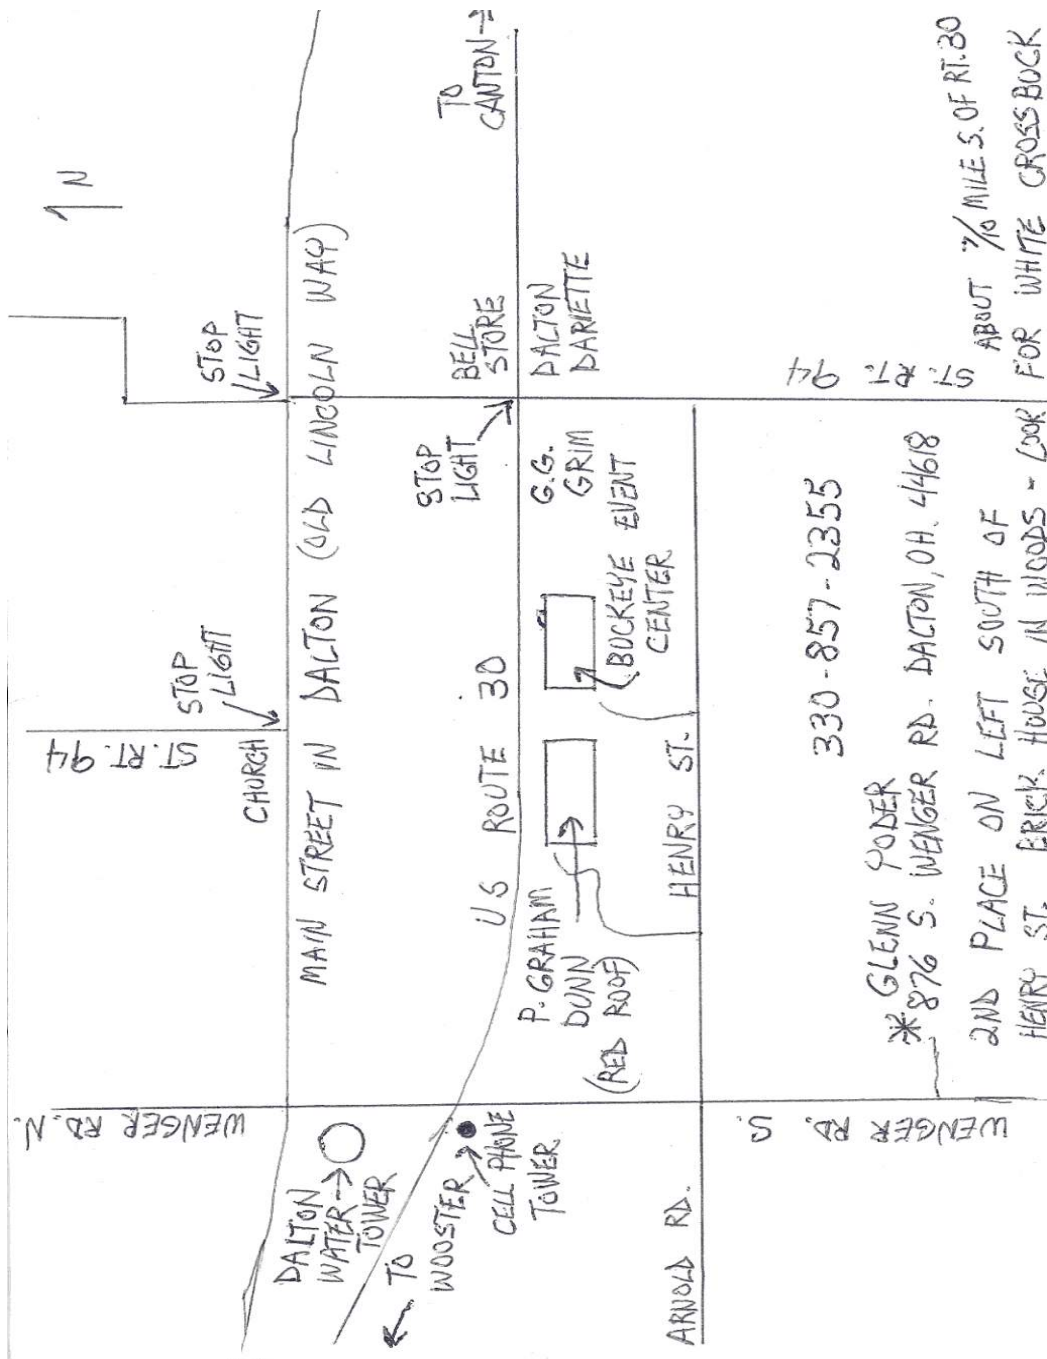 N
STOP
LIGHT
STOP
LIGHT
ST. RT. 94
CHURCH
WENGER RD. N.
MAIN STREET IN DALTON (OLD LINCOLN WAY)
DALTON
WATER
TOWER
TO
WOOSTER
CELL PHONE
TOWER
US ROUTE 30
STOP
LIGHT
BELL
STORE
TO
CANTON
P. GRAHAM
DUNN
(RED ROOF)
BUCKEYE EVENT
CENTER
G.G.
GRIM
DALTON
DARIETTE
ARNOLD RD.
HENRY ST.
WENGER RD. S.
ST. RT. 94
330-857-2355
* GLENN YODER
876 S. WENGER RD. DALTON, OH. 44618
2ND PLACE ON LEFT SOUTH OF
HENRY ST. BRICK HOUSE IN WOODS - LOOK
FOR WHITE CROSSBUCK
ABOUT /10 MILE S. OF RT. 30